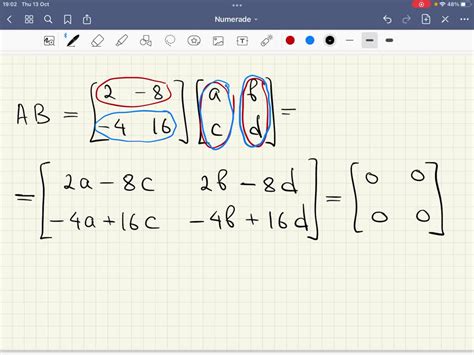 19:02 Thu 13 Oct
48%
Numerade
AB = [2 -8] [a b] =
[-4 16] [c d]
= [2a - 8c 2b - 8d] = [0 0]
[-4a + 16c -4b + 16d] [0 0]